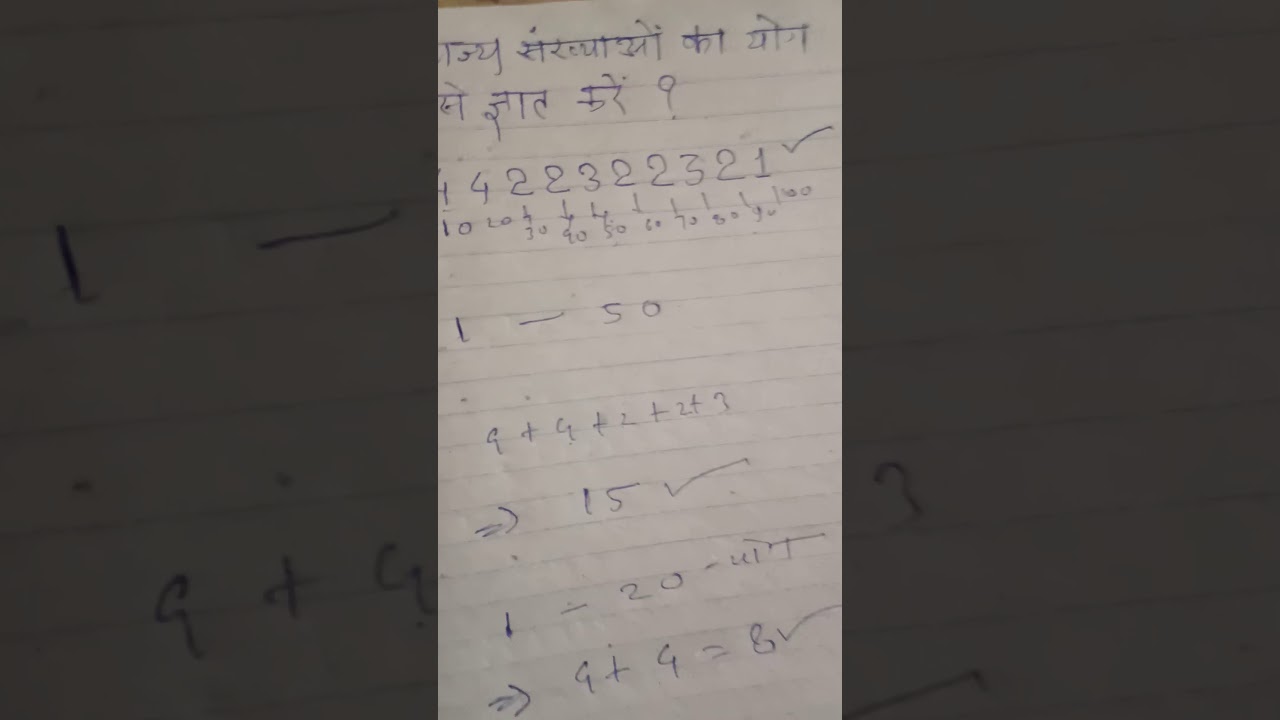 संख्याओं का योग
से ज्ञात करें ?
4 4 2 2 3 2 2 3 2 1
10 20 30 40 50 60 70 80 90 100
1 — 50
4 + 4 + 2 + 2 + 3
⇒ 15
1 — 20 - योग
⇒ 4 + 4 = 8